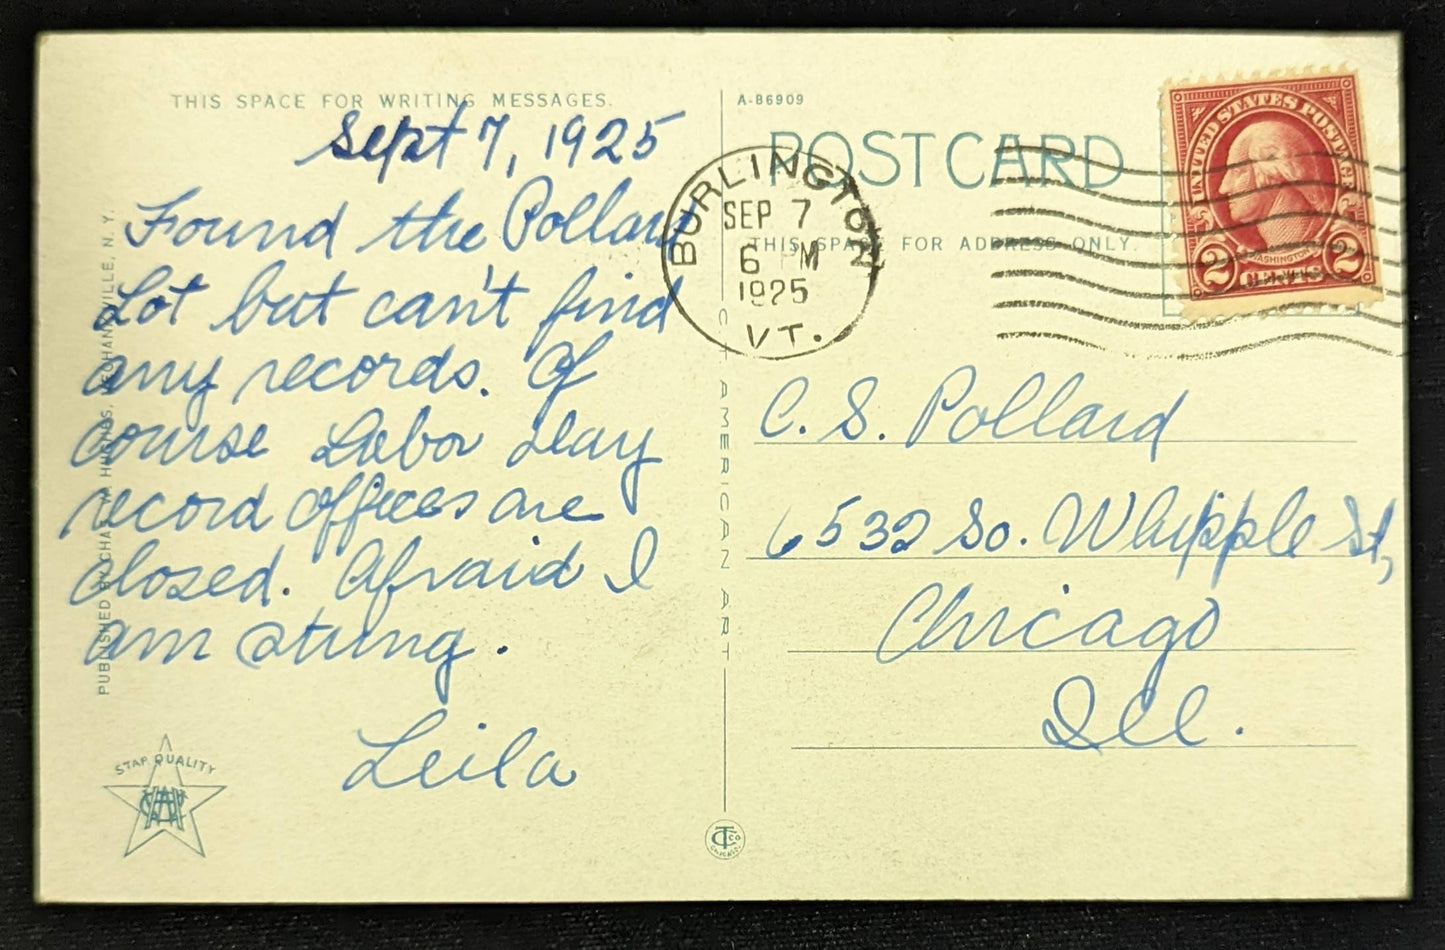 THIS SPACE FOR WRITING MESSAGES.
Sept 7, 1925
Found the Pollard
Lot but can't find
any records. Of
course Labor Day
record offices are
closed. Afraid I
am stung.
Leila
PUBLISHED BY CHAS. W. HUGHES, MECHANICVILLE, N. Y.
STAR QUALITY
A-86909
POST CARD
THIS SPACE FOR ADDRESS ONLY.
BURLINGTON
SEP 7
6 PM
1925
VT.
UNITED STATES POSTAGE
WASHINGTON
2 CENTS 2
C. S. Pollard
6532 So. Whipple St,
Chicago
Ill.
C. T. AMERICAN ART
CT CO
CHICAGO